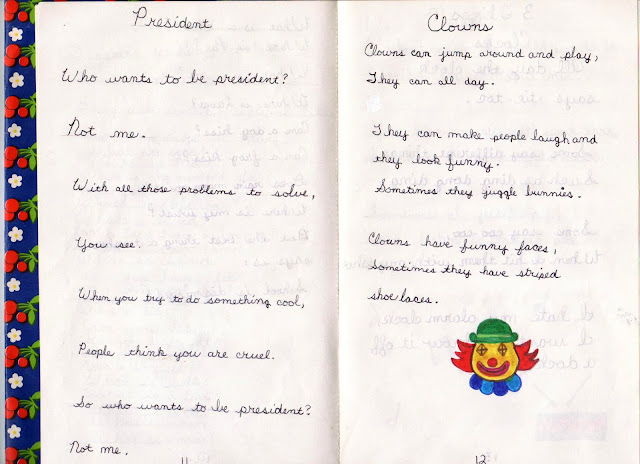 President
Who wants to be president?
Not me.
With all those problems to solve,
You see.
When you try to do something cool,
People think you are cruel.
So who wants to be president?
Not me.
11
Clowns
Clowns can jump around and play,
They can all day.
They can make people laugh and
they look funny.
Sometimes they juggle bunnies.
Clowns have funny faces,
Sometimes they have striped
shoe laces.
12